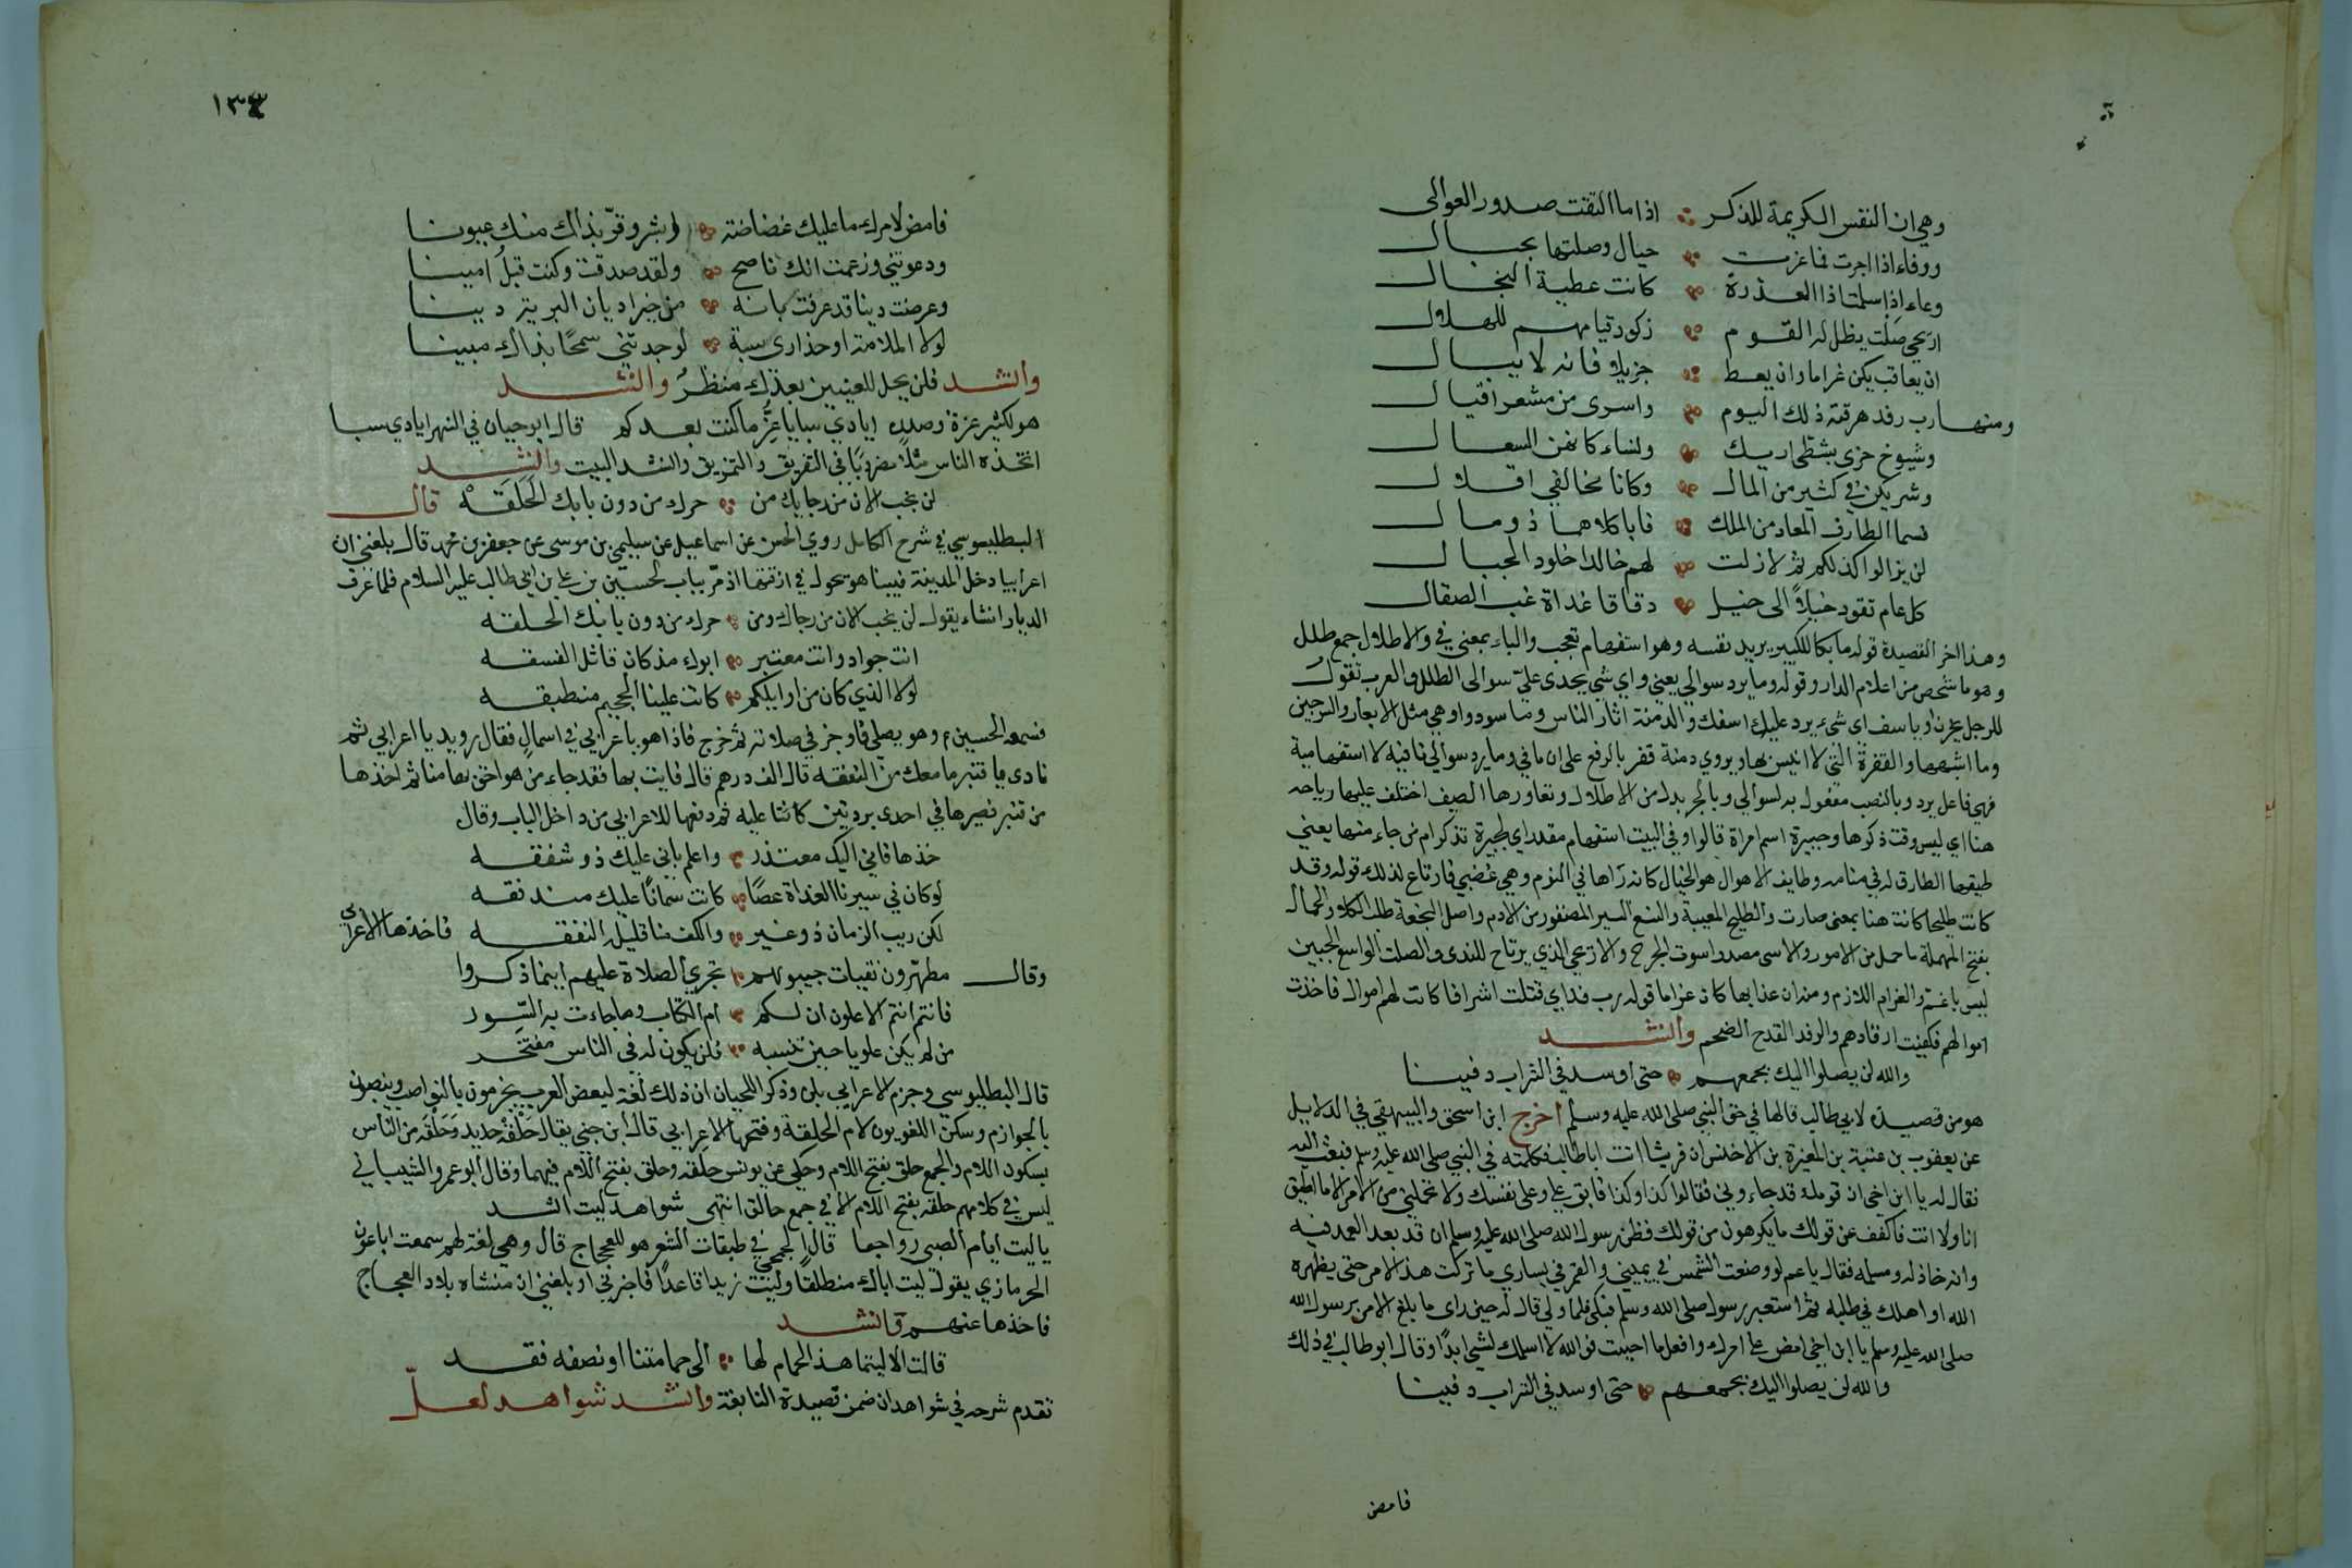 وهي ان النفس الكريمة للذكر اذا ما التقت صدور العوالى
ووفاء اذا اجرت فما غرت حبال وصلتها بحبال
وعاء اذا سلمت اذا العذرة كانت عطية البخال
اريحي صلت يظل له القوم ركود قيامهم للهلال
ان يعاقب يكن غراما وان يعط جزيلا فانه لا يبالى
ومنها رب رفد هرقته ذلك اليوم واسرى من معشر اقتال
وشيوخ حربى بشطى اريك ونساء كانهن السعالى
وشريكين في كثير من المال وكانا محالفي اقلال
قسما الطارف المعاد من الملك فابا كلاهما ذو مال
لن يزالوا كذلكم ثم لا زلت لهم خالدا خلود الجبال
كل عام تقود خيلا الى خيل دقاقا غداة غب الصقال
وهذا اخر القصيدة قوله ما بكا الكبير يريد نفسه وهو استفهام تعجب والباء بمعنى في والاطلال جمع طلل
وهو ما شخص من اعلام الدار وقوله وما يرد سوالي يعني واي شي يجدى علي سوالى الطلل والعرب تقول
للرجل يحزن او ياسف اى شيء يرد عليك اسفك والدمنة اثار الناس وما سودوا وهي مثل الابعار والسرجين
وما اشبهها والقفرة التي لا انيس بها ويروي دمنة قفر بالرفع على ان ما في وما يرد سوالي نافية لا استفهامية
فهي فاعل يرد وبالنصب مفعول به لسوالي وبالجر بدل من الاطلال وتعاورها الصيف اختلف عليها رياحه
هنا اي ليس وقت ذكرها وجبيرة اسم امراة قالوا وفي البيت استفهام مقدر اي لجبيرة تذكر ام من جاء منها يعني
طيفها الطارق له في منامه وطايف الاهوال هو الخيال كانه رآها في النوم وهي غضبي فارتاع لذلك قوله وقد
كانت طليحا كانت هنا بمعنى صارت والطليح المعيية والنسع السير المضفور من الادم واصل النجعة طلب الكلا والحمال
بفتح المهملة ما حمل من الامور والاسى مصدر اسوت الجرح والاريحي الذي يرتاح للندى والصلت الواسع الجبين
ليس باغم والغرام اللازم ومنه ان عذابها كان غراما قوله رب رفد اي قتلت اشرافا كانت لهم اموال فاخذت
اموالهم فكفيت ارفادهم والرفد القدح الضخم وانشد
والله لن يصلوا اليك بجمعهم حتى اوسد في التراب دفينا
هو من قصيدة لابي طالب قالها في حق النبي صلى الله عليه وسلم اخرج ابن اسحق والبيهقي في الدلايل
عن يعقوب بن عتبة بن المغيرة بن الاخنس ان قريشا اتت ابا طالب فكلمته في النبي صلى الله عليه وسلم فبعث اليه
فقال له يا ابن اخي ان قومك قد جاءوني فقالوا كذا وكذا فابق علي وعلى نفسك ولا تحملني من الامر الا ما اطيق
انا ولا انت فاكفف عن قولك ما يكرهون من قولك فظن رسول الله صلى الله عليه وسلم ان قد بعد العمد فيه
وانه خاذله ومسلمه فقال يا عم لو وضعت الشمس في يميني والقمر في يساري ما تركت هذا الامر حتى يظهره
الله او اهلك في طلبه ثم استعبر رسول صلى الله وسلم فبكى فلما ولي قال له حين راى ما بلغ الامر برسول الله
صلى الله عليه وسلم يا ابن اخي امض على امرك وافعل ما احببت فو الله لا اسلمك لشي ابدا وقال ابو طالب في ذلك
والله لن يصلوا اليك بجمعهم حتى اوسد في التراب دفينا
فامض
١٣٤
فامض لامرك ما عليك غضاضة وابشر وقرّ بذاك منك عيونا
ودعوتني وزعمت انك ناصح ولقد صدقت وكنت قبل امينا
وعرضت دينا قد عرفت بانه من خير اديان البرية دينا
لولا الملامة او حذارى سبة لوجدتني سمحا بذاك مبينا
وانشد فلن يحل للعينين بعدك منظر وانشد
هو لكثير عزة وصدره ايادي سبا يا عز ما كنت بعدكم قال ابو حيان في النهر ايادي سبا
اتخذه الناس مثلا مضروبا في التفريق والتمزيق وانشد البيت وانشد
لن يخب الان من رجايك من حرك من دون بابك الحلقة قال
البطليوسي في شرح الكامل روي الحسن عن اسماعيل عن سليمن بن موسى عن جعفر بن محمد قال بلغني ان
اعرابيا دخل المدينة فبينا هو يجول في ازقتها اذ مر بباب الحسين بن علي بن ابي طالب عليه السلام فلما عرف
الديار انشاء يقول لن يخب الان من رجاك ومن حرك من دون بابك الحلقه
انت جواد وانت معتبر ابوك مذ كان قاتل الفسقه
لولا الذي كان من اوايلكم كانت علينا الجحيم منطبقه
فسمعه الحسين وهو يصلي فاوجز في صلاته ثم خرج فاذا هو باعرابي في اسمال فقال رويد يا اعرابي ثم
نادى يا قنبر ما معك من النفقه قال الف درهم قال فايت بها فقد جاء من هو احق بها منا ثم اخذها
من قنبر فصيرها في احدى بردتين كانتا عليه ثم دفعها للاعرابي من داخل الباب وقال
خذها فاني اليك معتذر واعلم باني عليك ذو شفقه
لو كان في سيرنا الغداة عصا كانت سمانا عليك مندفقه
لكن ريب الزمان ذو غير والكف منا قليلة النفقه فاخذها الاعرابي
وقال مطهرون نقيات جيوبهم تجرى الصلاة عليهم اينما ذكروا
فانتم انتم الاعلون ان لكم ام الكتاب وما جاءت به السور
من لم يكن علويا حين تنسبه فلن يكون له في الناس مفتخر
قال البطليوسي وجزم الاعرابي بلن وذكر اللحيان ان ذلك لغة لبعض العرب يجزمون بالنواصب وينصبون
بالجوازم وسكن اللغويون لام الحلقة وفتحها الاعرابي قال ابن جني يقال حلقة حديد وحلقة من الناس
بسكون اللام والجمع حلق بفتح اللام وحكي عن يونس حلقه وحلق بفتح اللام فيهما وقال ابو عمرو الشيباني
ليس في كلامهم حلقه بفتح اللام الا في جمع حالق انتهى شواهد ليت انشد
يا ليت ايام الصبى رواجعا قال الجمحي في طبقات الشعر هو للعجاج قال وهي لغة لهم سمعت ابا عون
الحرمازي يقول ليت اباك منطلقا وليت زيدا قاعدا فاخبرني او بلغني ان منشاه بلاد العجاج
فاخذها عنهم وانشد
قالت الا ليتما هذا الحمام لها الى حمامتنا او نصفه فقد
تقدم شرحه في شواهد ان ضمن قصيدة النابغة وانشد شواهد لعل